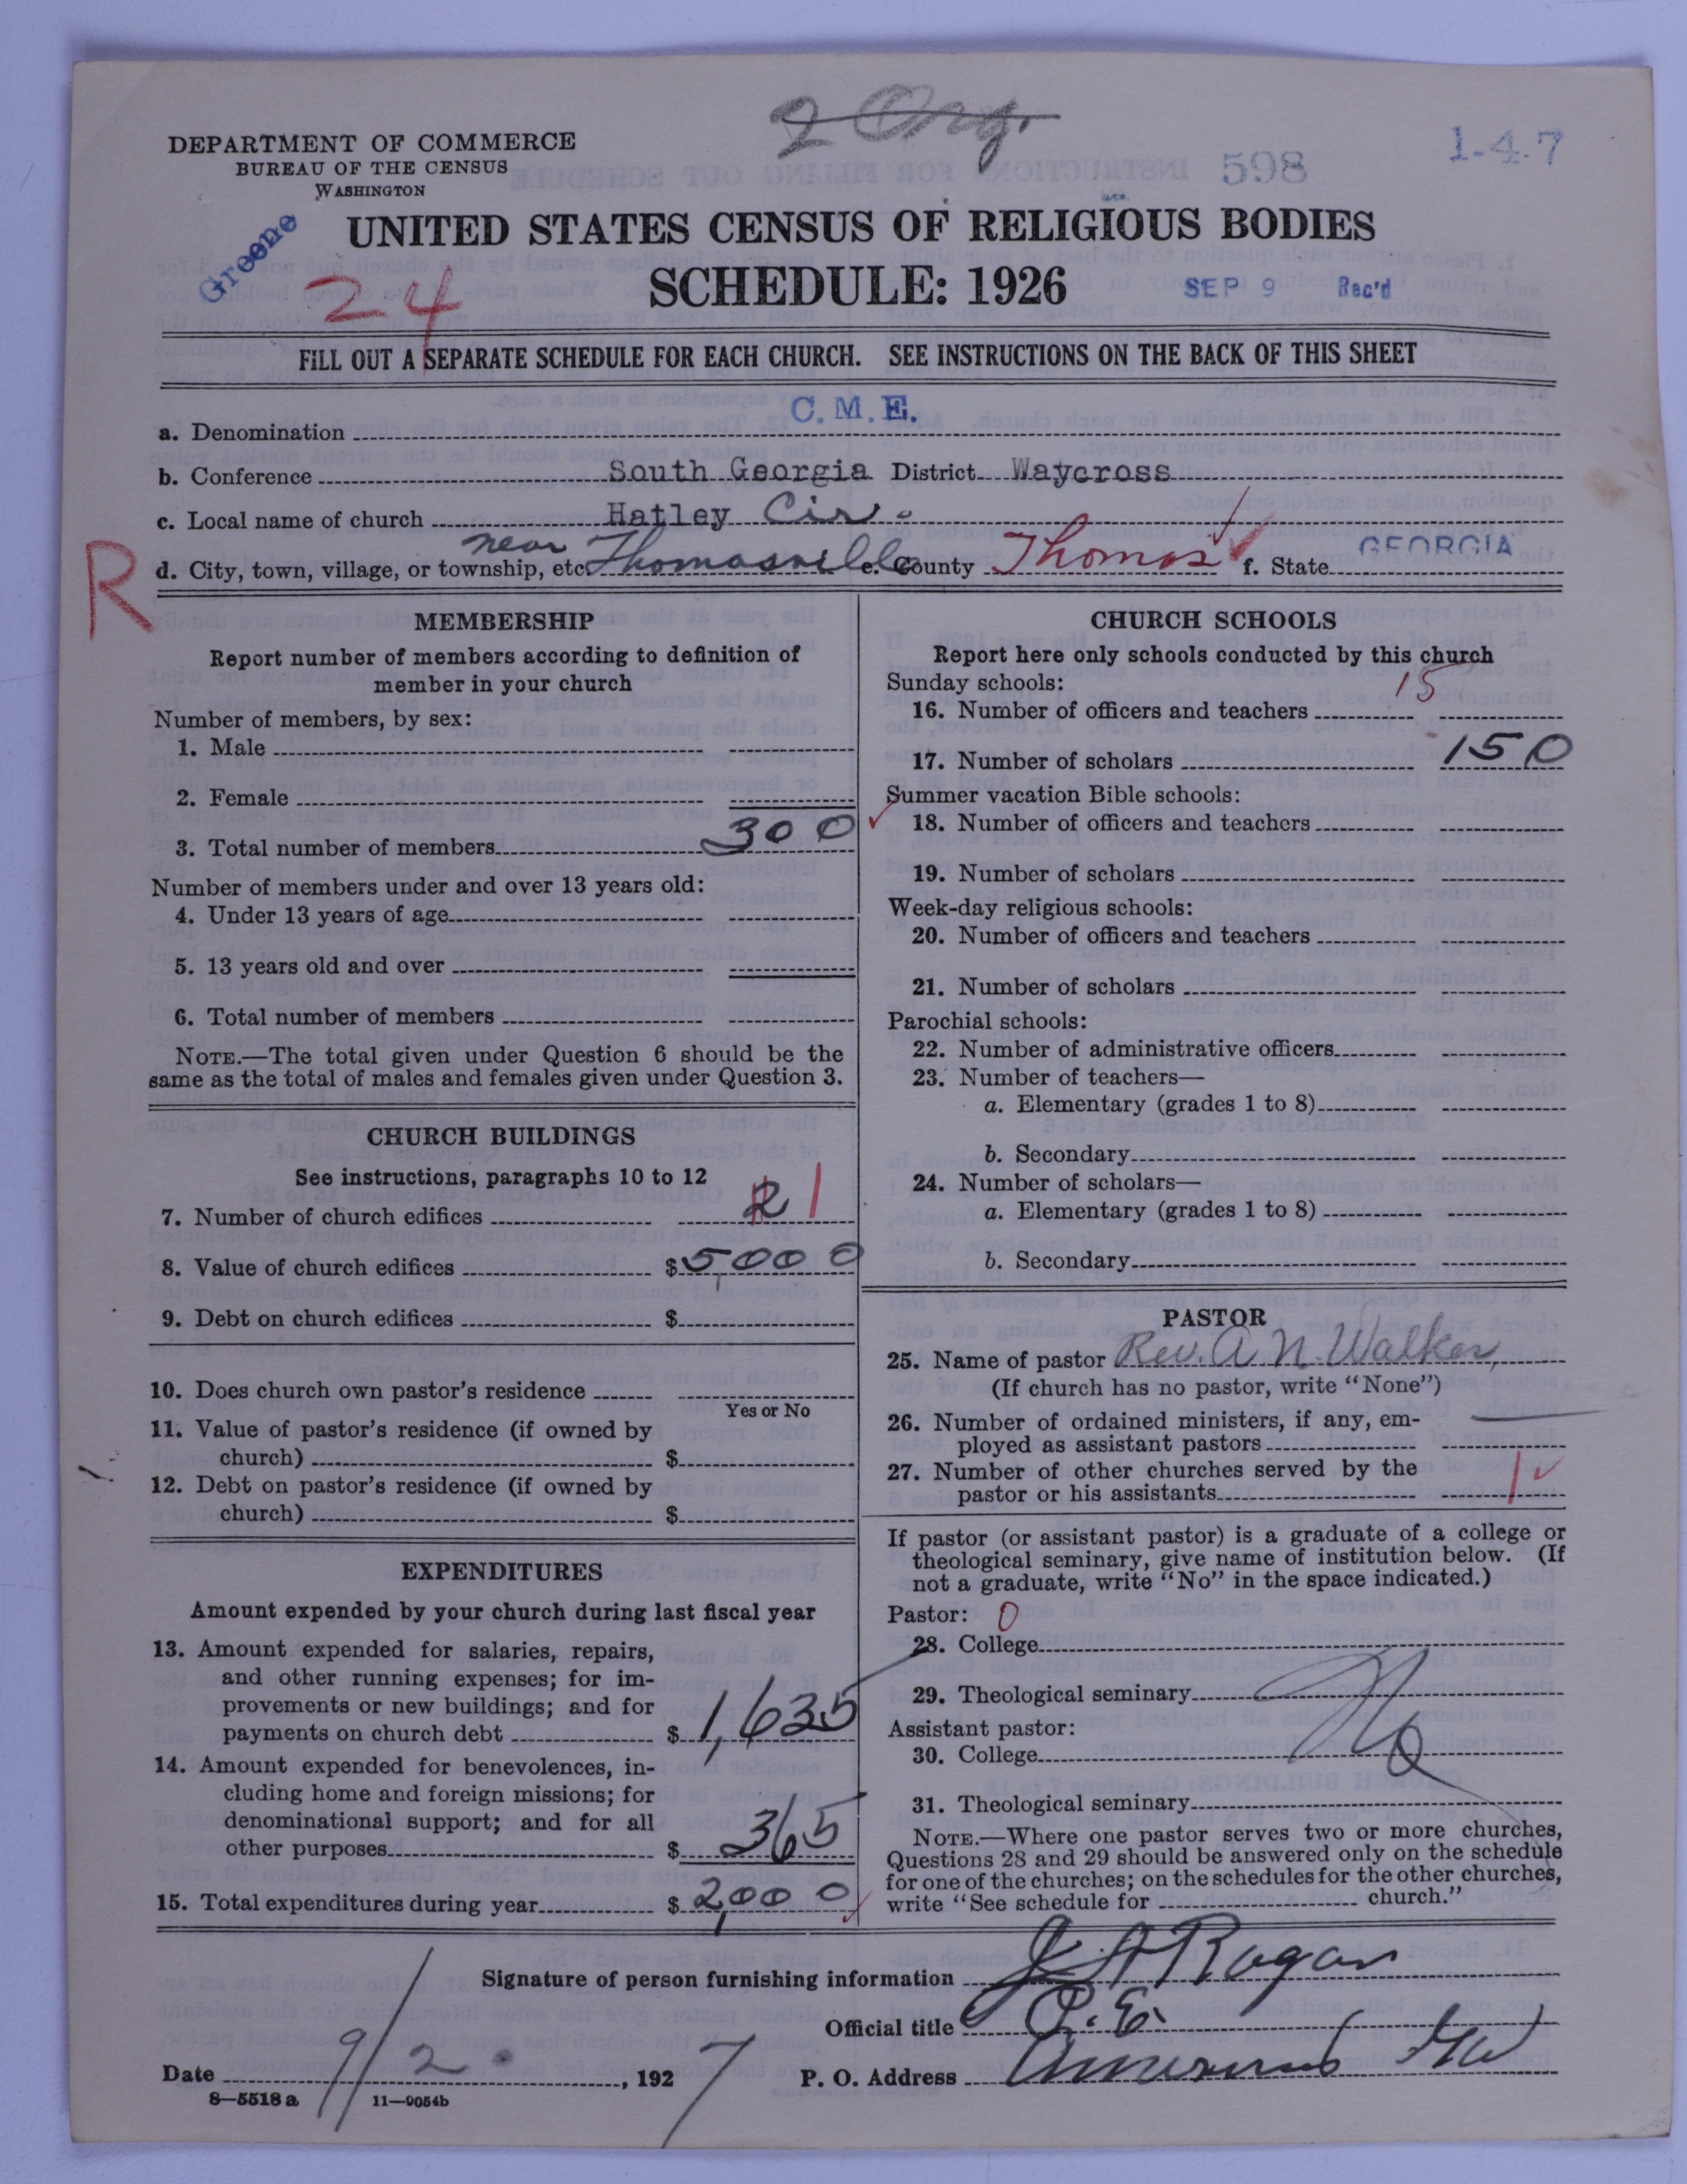 2 Org.
DEPARTMENT OF COMMERCE
BUREAU OF THE CENSUS
WASHINGTON
598
1-4-7
Greene
24
UNITED STATES CENSUS OF RELIGIOUS BODIES
SCHEDULE: 1926
SEP 9 Rec'd
FILL OUT A SEPARATE SCHEDULE FOR EACH CHURCH. SEE INSTRUCTIONS ON THE BACK OF THIS SHEET
a. Denomination C. M. E.
b. Conference South Georgia District Waycross
c. Local name of church Hatley Cir.
R
d. City, town, village, or township, etc. near Thomasville e. County Thomas f. State GEORGIA
MEMBERSHIP
Report number of members according to definition of
member in your church
Number of members, by sex:
1. Male
2. Female
3. Total number of members 300
Number of members under and over 13 years old:
4. Under 13 years of age
5. 13 years old and over
6. Total number of members
NOTE.—The total given under Question 6 should be the
same as the total of males and females given under Question 3.
CHURCH BUILDINGS
See instructions, paragraphs 10 to 12
7. Number of church edifices 2 1
8. Value of church edifices $ 5,000
9. Debt on church edifices $
10. Does church own pastor's residence
Yes or No
11. Value of pastor's residence (if owned by
church) $
12. Debt on pastor's residence (if owned by
church) $
EXPENDITURES
Amount expended by your church during last fiscal year
13. Amount expended for salaries, repairs,
and other running expenses; for im-
provements or new buildings; and for
payments on church debt $ 1,635
14. Amount expended for benevolences, in-
cluding home and foreign missions; for
denominational support; and for all
other purposes $ 365
15. Total expenditures during year $ 2,000
CHURCH SCHOOLS
Report here only schools conducted by this church
Sunday schools:
16. Number of officers and teachers 15
17. Number of scholars 150
Summer vacation Bible schools:
18. Number of officers and teachers
19. Number of scholars
Week-day religious schools:
20. Number of officers and teachers
21. Number of scholars
Parochial schools:
22. Number of administrative officers
23. Number of teachers—
a. Elementary (grades 1 to 8)
b. Secondary
24. Number of scholars—
a. Elementary (grades 1 to 8)
b. Secondary
PASTOR
25. Name of pastor Rev. A N. Walker,
(If church has no pastor, write "None")
26. Number of ordained ministers, if any, em-
ployed as assistant pastors
27. Number of other churches served by the
pastor or his assistants 1
If pastor (or assistant pastor) is a graduate of a college or
theological seminary, give name of institution below. (If
not a graduate, write "No" in the space indicated.)
Pastor: 0
28. College
29. Theological seminary No
Assistant pastor:
30. College
31. Theological seminary
NOTE.—Where one pastor serves two or more churches,
Questions 28 and 29 should be answered only on the schedule
for one of the churches; on the schedules for the other churches,
write "See schedule for church."
Signature of person furnishing information J. A Rogan
Official title P. E.
Date 9/2, 1927 P. O. Address Americus Ga
8—5518 a 11—9054b